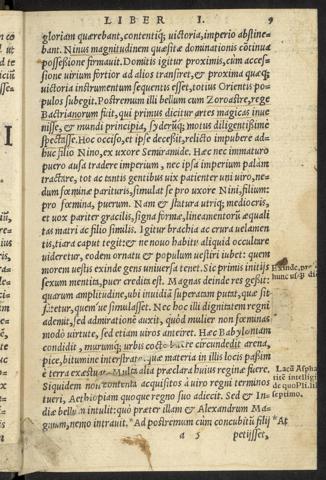 LIBER I. 9
gloriam quærebant, contentiq; victoria, imperio abstine-
bant. Ninus magnitudinem quæsitæ dominationis cōtinua
possessione firmauit. Domitis igitur proximis, cùm acces-
sione virium fortior ad alios transiret, & proxima quæq;
victoria instrumentum sequentis esset, totius Orientis po-
pulos subegit. Postremum illi bellum cum Zoroastre, rege
Bactrianorum fuit, qui primus dicitur artes magicas inue
nisse, & mundi principia, syderūq; motus diligentissimè
spectasse. Hoc occiso, et ipse decessit, relicto impubere ad-
huc filio Nino, ex uxore Semiramide. Hæc nec immaturo
puero ausa tradere imperium, nec ipsa imperium palàm
tractare, tot ac tantis gentibus uix patienter uni uiro, ne-
dum fœminæ parituris, simulat se pro uxore Nini, filium:
pro fœmina, puerum. Nam & statura utriq; mediocris,
et uox pariter gracilis, signa formæ, lineamentorū æquali
tas matri ac filio similis. Igitur brachia ac crura uelamen
tis, tiara caput tegit: & ne nouo habitu aliquid occultare
uideretur, eodem ornatu & populum uestiri iubet: quem
morem uestis exinde gens uniuersa tenet. Sic primis initijs
sexum mentita, puer credita est. Magnas deinde res gessit:
quarum amplitudine, ubi inuidiā superatam putat, quæ sit
fatetur, quem'ue simulasset. Nec hoc illi dignitatem regni
ademit, sed admirationē auxit, quòd mulier non fœminas
modò uirtute, sed etiam uiros anteiret. Hæc Babyloniam
condidit, murumq; urbis cocto latere circundedit, arena,
pice, bitumine interstrato, quæ materia in illis locis passim
è terra exæstuat. Multa alia præclara huius reginæ fuere.
Siquidem non contenta acquisitos à uiro regni terminos
tueri, Aethiopiam quoque regno suo adiecit. Sed & In-
diæ bellum intulit: quò præter illam & Alexandrum Ma-
gnum, nemo intrauit. *Ad postremum cùm concubitū filij *At
a 5 petijsset,
Exinde,
hunc us
Lacū Aspha
intelligi
de quo Pli. li.
septimo.